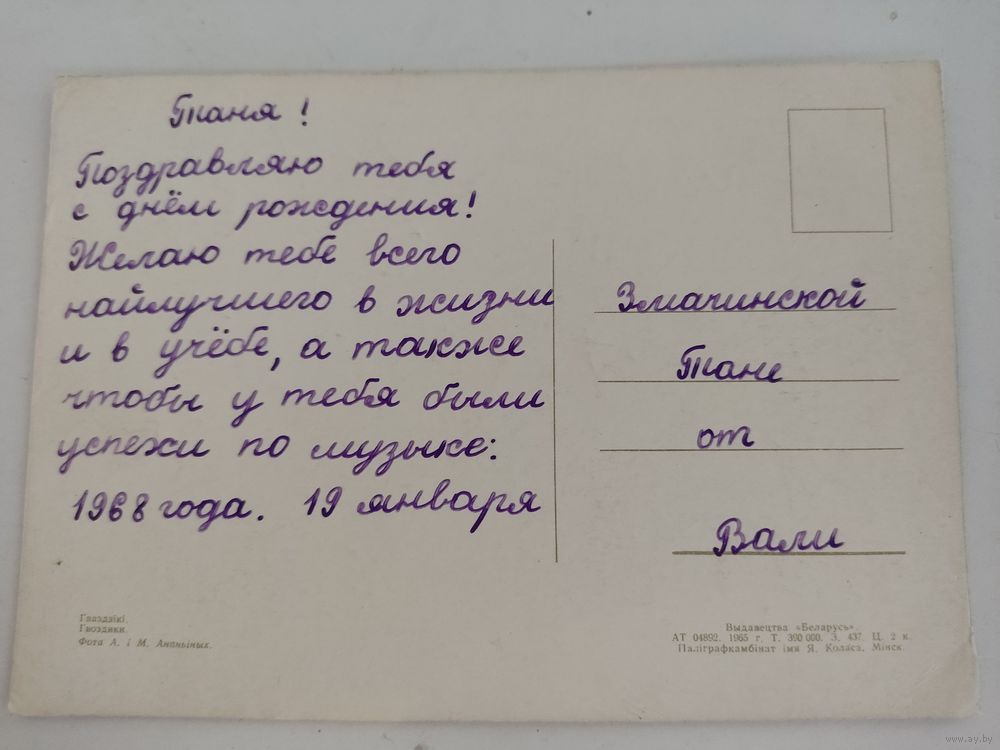 Таня!
Поздравляю тебя
с днём рождения!
Желаю тебе всего
найлучшего в жизни
и в учёбе, а также
чтобы у тебя были
успехи по музыке:
1968 года. 19 января
Змачинской
Тане
от
Вали
Гваздзікі.
Гвоздики.
Фота А. і М. Ананьіных.
Выдавецтва «Беларусь».
АТ 04892. 1965 г. Т. 390 000. З. 437. Ц. 2 к.
Паліграфкамбінат імя Я. Коласа, Мінск.
www.ay.by